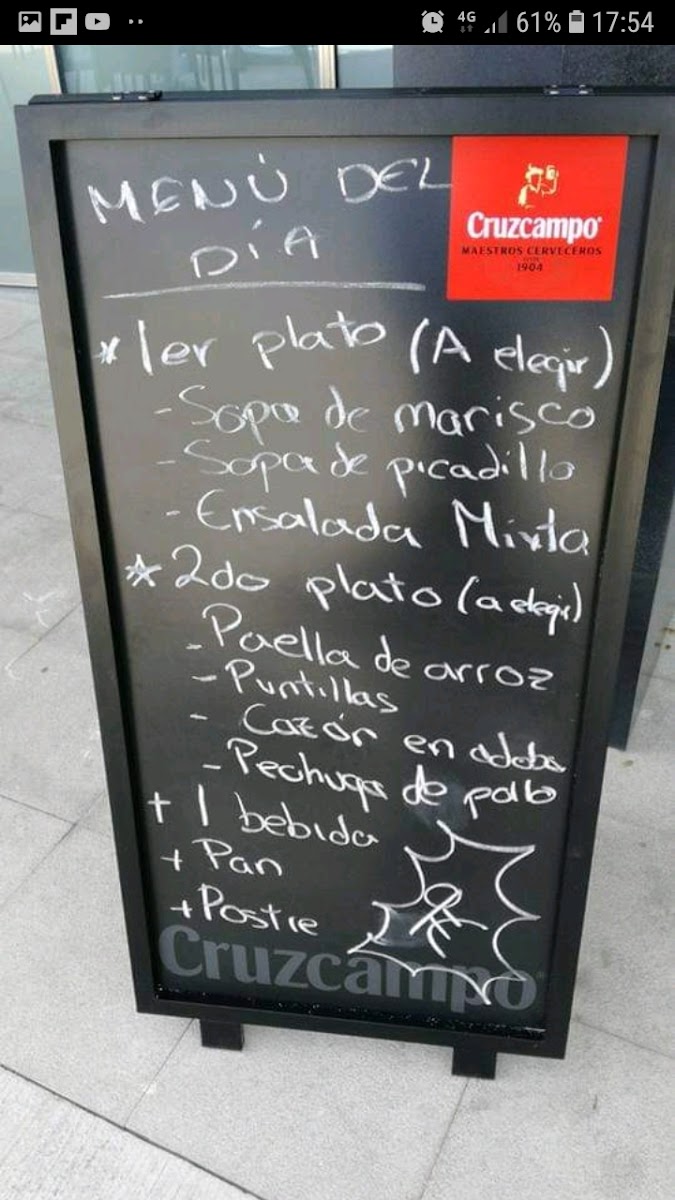 4G 61% 17:54
MENÚ DEL
DÍA
Cruzcampo
MAESTROS CERVECEROS
1904
* 1er plato (A elegir)
- Sopa de marisco
- Sopa de picadillo
- Ensalada Mixta
* 2do plato (a elegir)
- Paella de arroz
- Puntillas
- Cazón en adobo
- Pechuga de pollo
+ 1 bebida
+ Pan
+ Postre
Cruzcampo